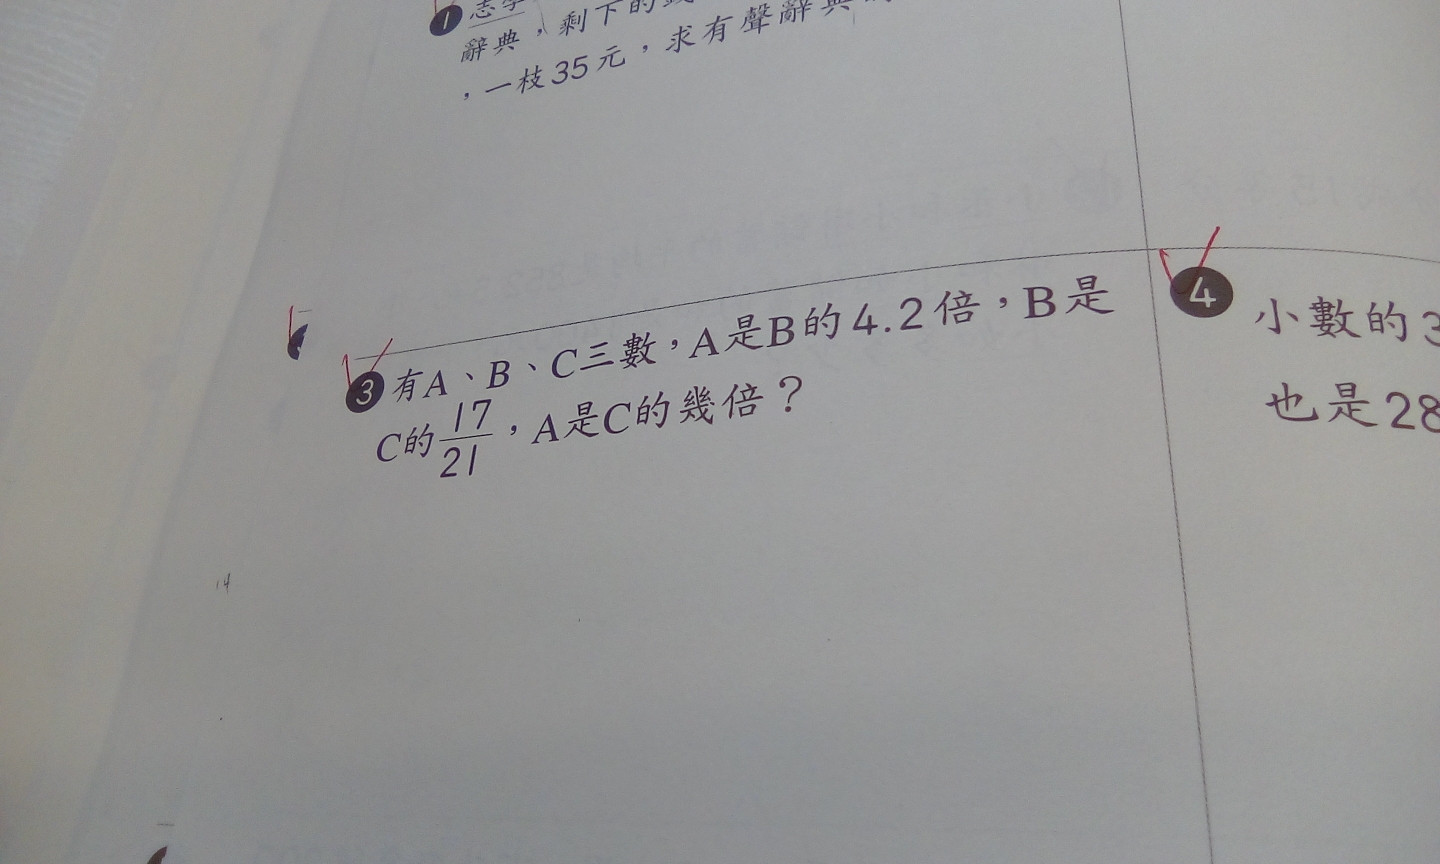 1 志學
辭典，剩下的
，一枝35元，求有聲辭典
3 有A、B、C三數，A是B的4.2倍，B是
C的17/21，A是C的幾倍？
4 小數的3
也是28
14